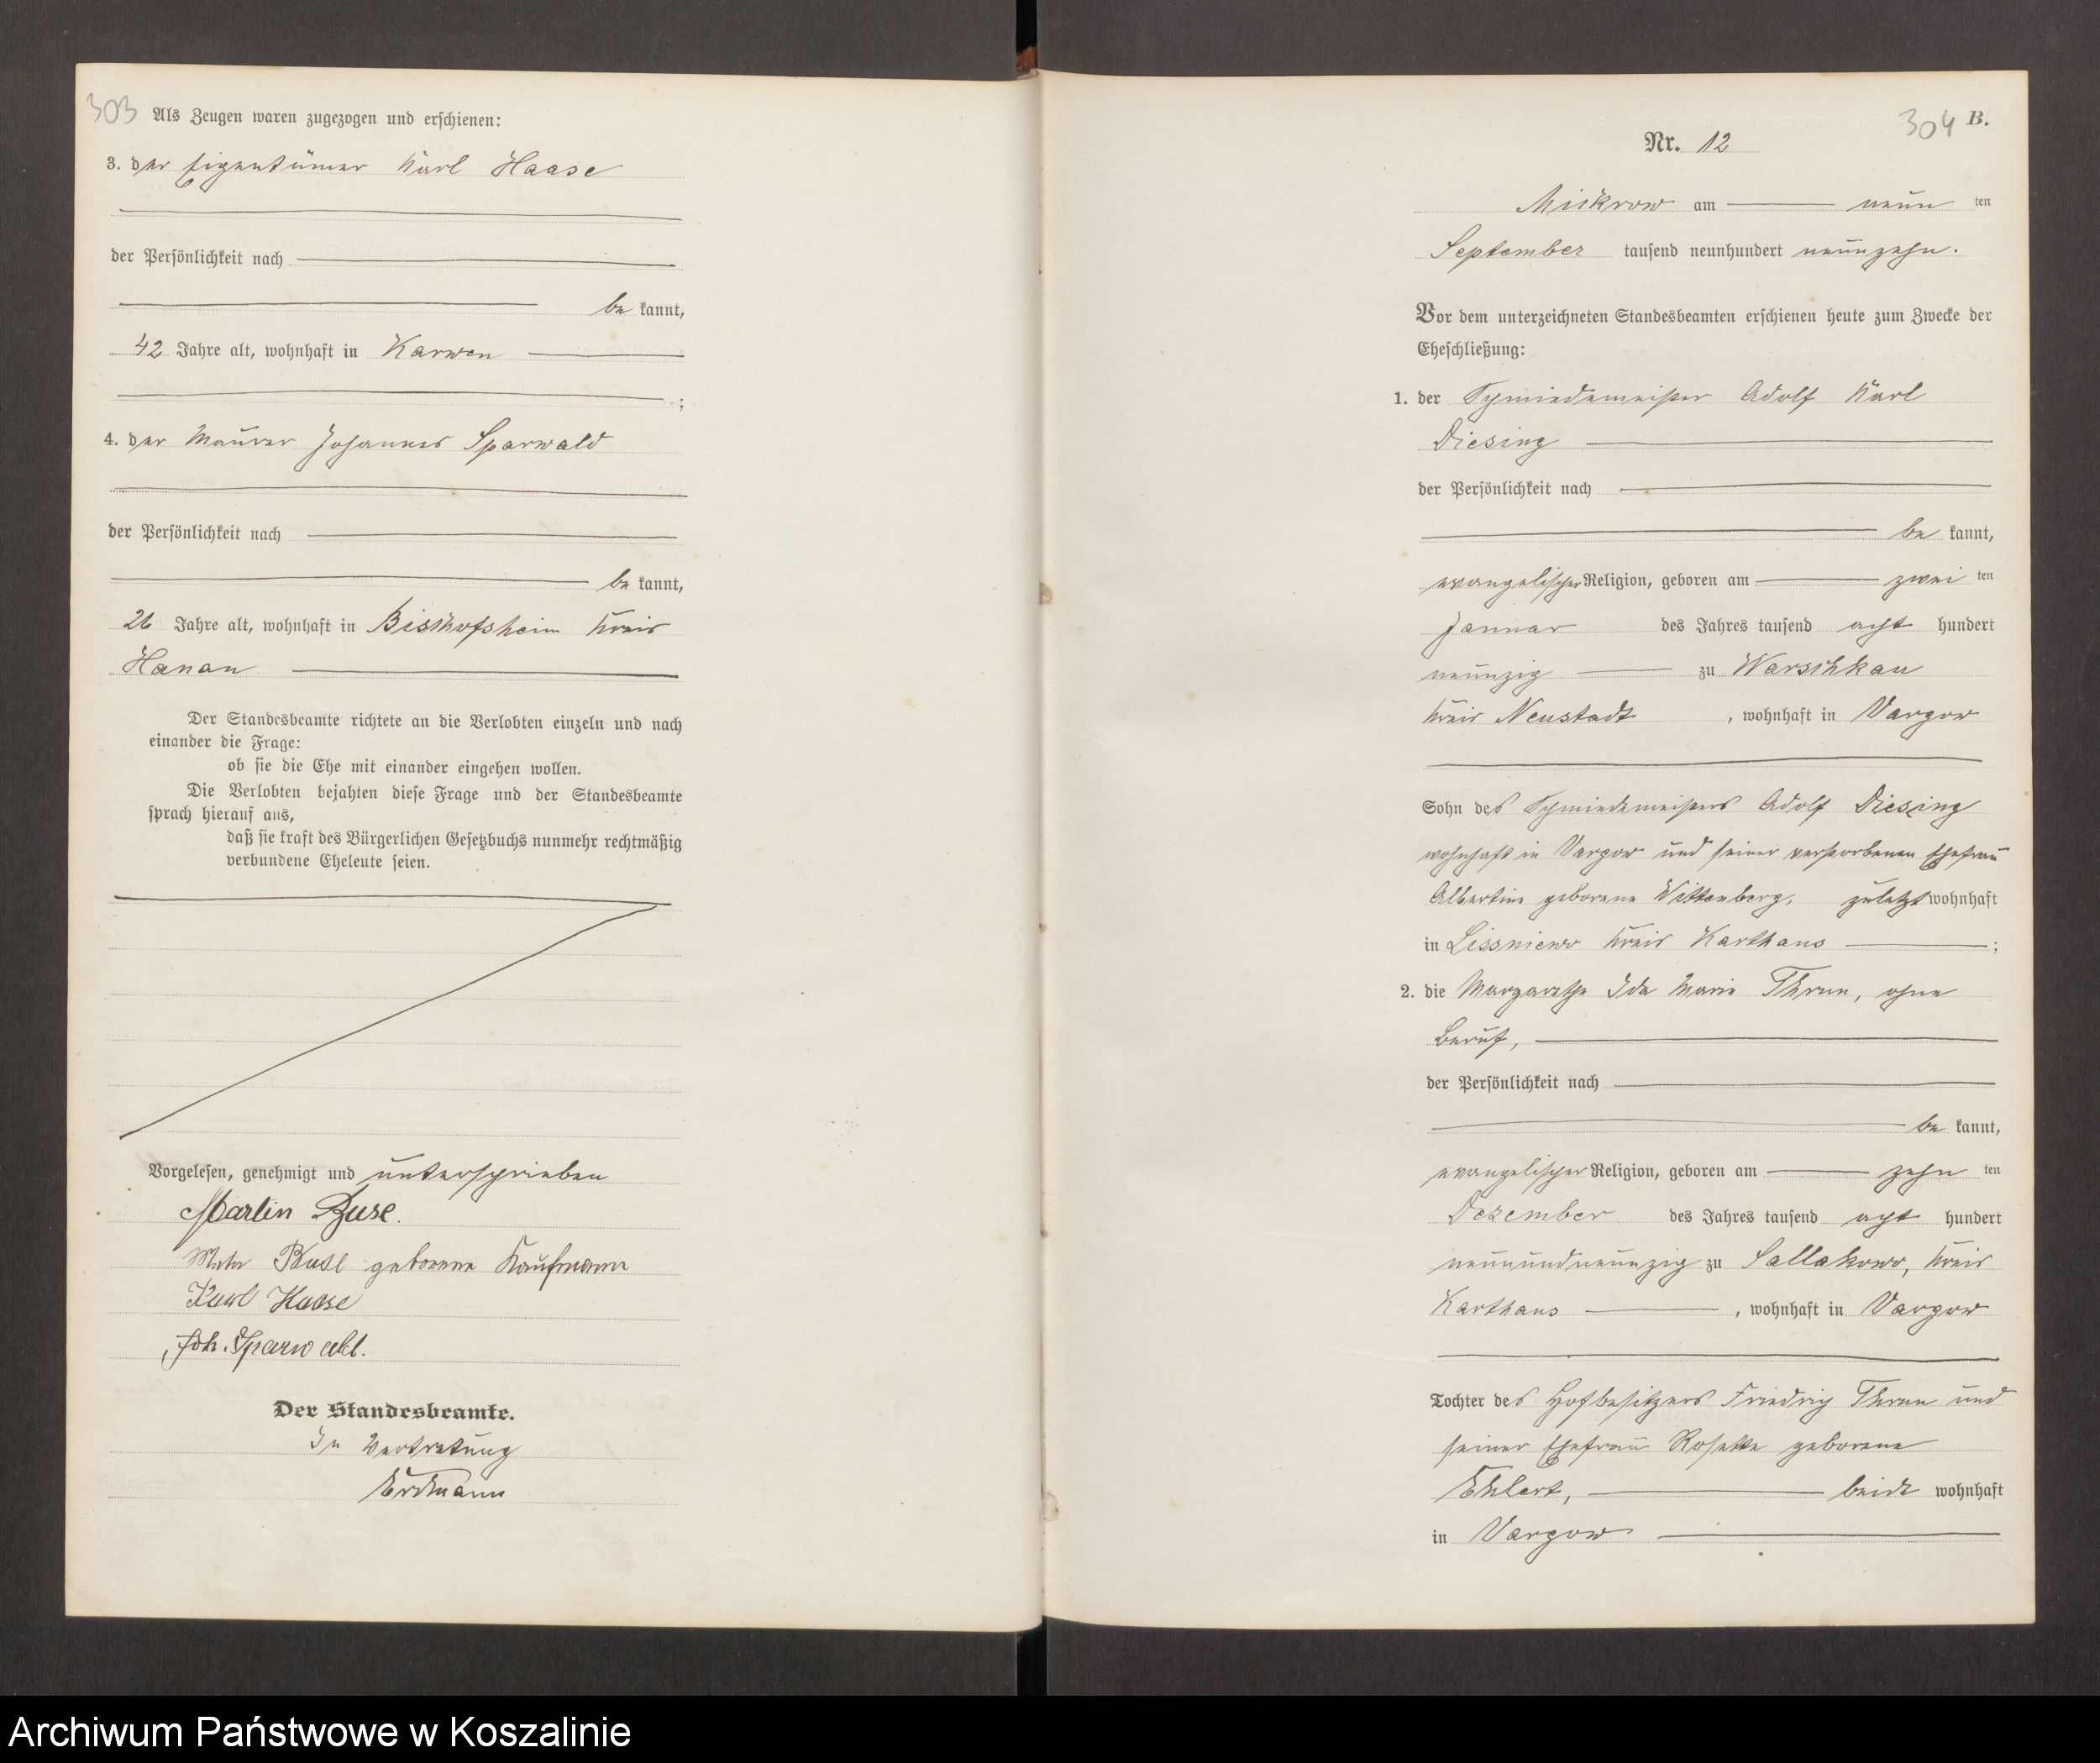 303
Als Zeugen waren zugezogen und erschienen:
3. der Eigentümer Karl Haase
der Persönlichkeit nach
be kannt,
42 Jahre alt, wohnhaft in Karwen
;
4. der Maurer Johannes Sparwald
der Persönlichkeit nach
be kannt,
26 Jahre alt, wohnhaft in Bischofsheim Kreis
Hanau
Der Standesbeamte richtete an die Verlobten einzeln und nach
einander die Frage:
ob sie die Ehe mit einander eingehen wollen.
Die Verlobten bejahten diese Frage und der Standesbeamte
sprach hierauf aus,
daß sie kraft des Bürgerlichen Gesetzbuchs nunmehr rechtmäßig
verbundene Eheleute seien.
Vorgelesen, genehmigt und unterschrieben
Martin Buse.
Buse geborene Kaufmann
Karl Haase
Joh. Sparwald.
Der Standesbeamte.
In Vertretung
Erdmann
304 B.
Nr. 12
Mickrow am neun ten
September tausend neunhundert neunzehn.
Vor dem unterzeichneten Standesbeamten erschienen heute zum Zwecke der
Eheschließung:
1. der Schmiedemeister Adolf Karl
Diesing
der Persönlichkeit nach
be kannt,
evangelischer Religion, geboren am zwei ten
Januar des Jahres tausend acht hundert
neunzig zu Warschkau
Kreis Neustadt, wohnhaft in Vargow
Sohn des Schmiedemeisters Adolf Diesing
wohnhaft in Vargow und seiner verstorbenen Ehefrau
Albertine geborene Wittenberg, zuletzt wohnhaft
in Lissniewo Kreis Karthaus ;
2. die Margarethe Ida Marie Thrun, ohne
Beruf,
der Persönlichkeit nach
be kannt,
evangelischer Religion, geboren am zehn ten
Dezember des Jahres tausend acht hundert
neunundneunzig zu Sallakowo, Kreis
Karthaus, wohnhaft in Vargow
Tochter des Hofbesitzers Friedrich Thrun und
seiner Ehefrau Rosette geborene
Ehlert, beide wohnhaft
in Vargow
Archiwum Państwowe w Koszalinie